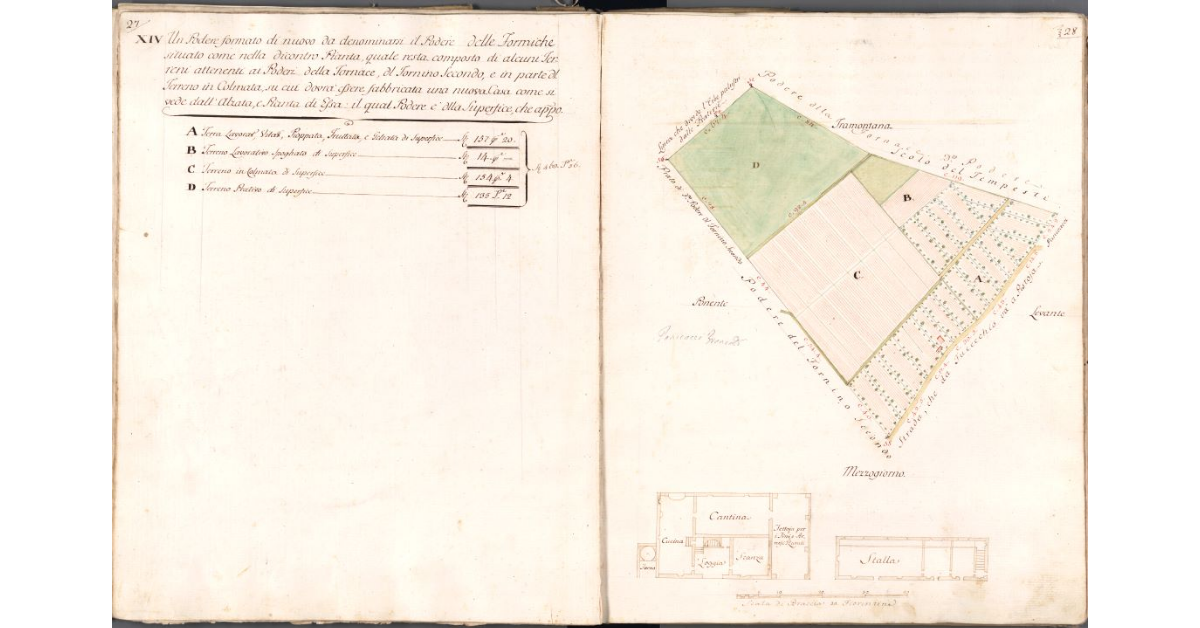 27
XIV Un Podere formato di nuovo da denominarsi il Podere delle Formiche
situato come nella dicontro Pianta, quale resta composto di alcuni Ter-
reni attenenti ai Poderi della Fornace, del Fornino Secondo, e in parte di
Terreno in Colmata, su cui dovrà essere fabbricata una nuova Casa come si
vede dall'Alzata, e Pianta di Essa il qual Podere e della Superfice, che appo.
A Terra Lavorat. Vitat. Pioppata, Fruttata, e Gelsata di Superfice 157 20
B Terreno Lavorativo Spogliato di Superfice 14
C Terreno in Colmata di Superfice 154 4
D Terreno Prativo di Superfice 135 12
28
Podere della Fornace
Tramontana
Scolo del Tempesti
D
B
C
A
Prati di do. Podere del Fornino Secondo
Podere del Fornino Secondo
Ponente
Levante
Strada, che da
Mezzogiorno.
Cantina
Cucina
Loggia
Stanza
Forno
Tettoja per
Stalla
Scala di Braccia Fiorentine